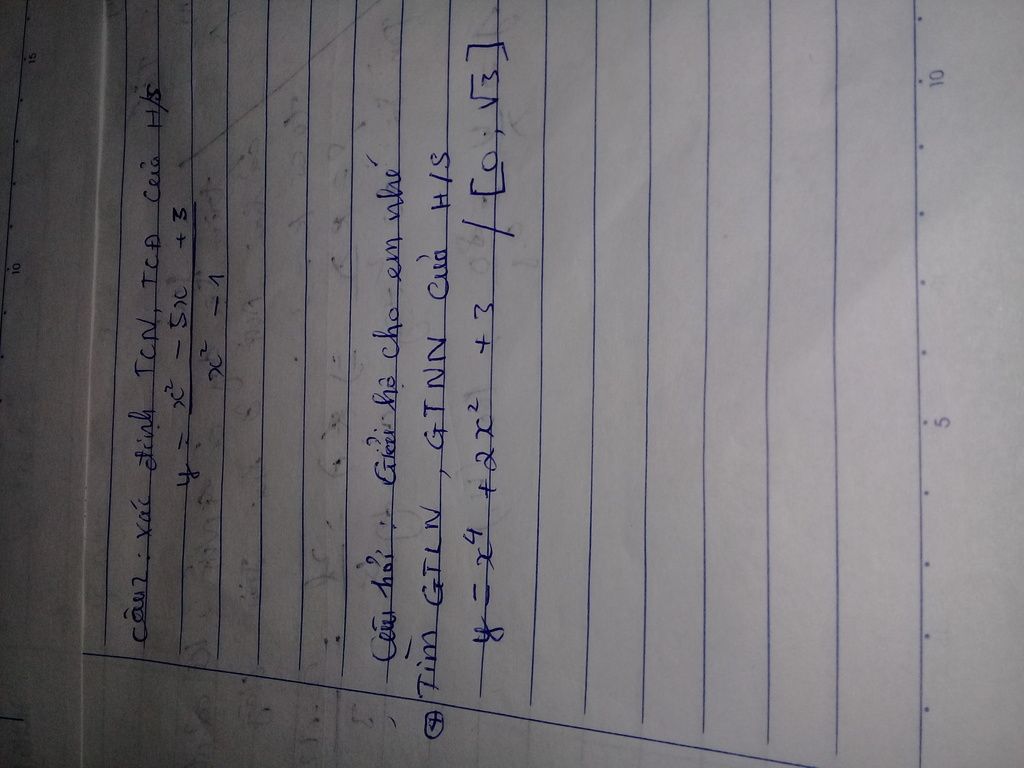 Câu 2: xác định TCN, TCĐ của H/S
y = x² - 5x + 3
x² - 1
Câu hỏi: Giải hộ cho em nhé
+ Tìm GTLN, GTNN của H/S
y = x⁴ + 2x² + 3 / [0; √3]
15
10
10
5